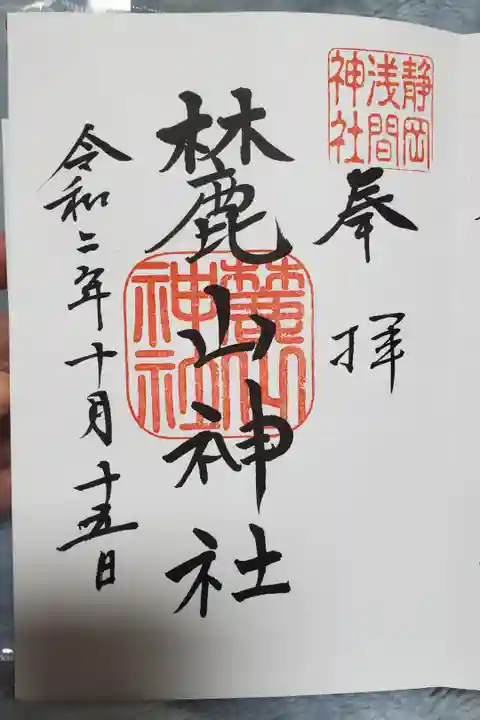 静岡
浅間
神社
奉拝
麓山神社
麓山
神社
令和二年十月十五日